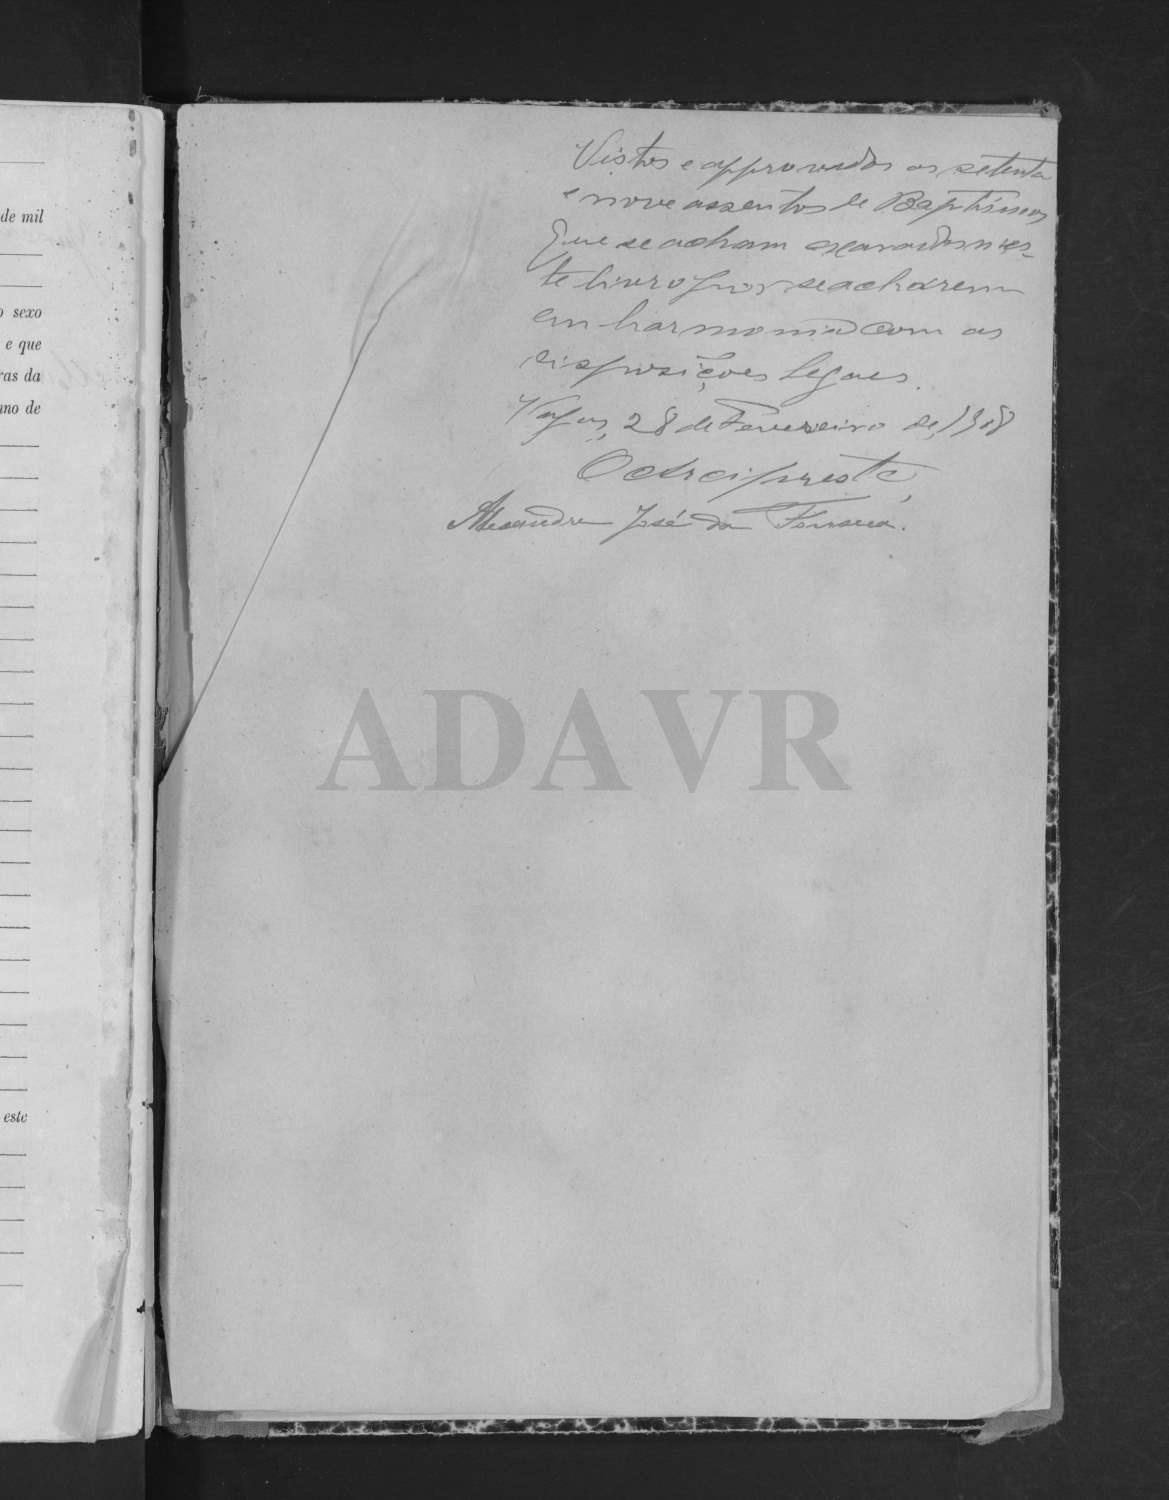 de mil
o sexo
e que
ras da
nno de
este
Vistos e approvados os setenta
e nove assentos de Baptismos
que se acham exarados nes-
te livro por se acharem
em harmonia com as
disposições legaes.
Vagos, 28 de Fevereiro de 1908
O Arcipreste,
Alexandre José da Fonseca.
ADAVR